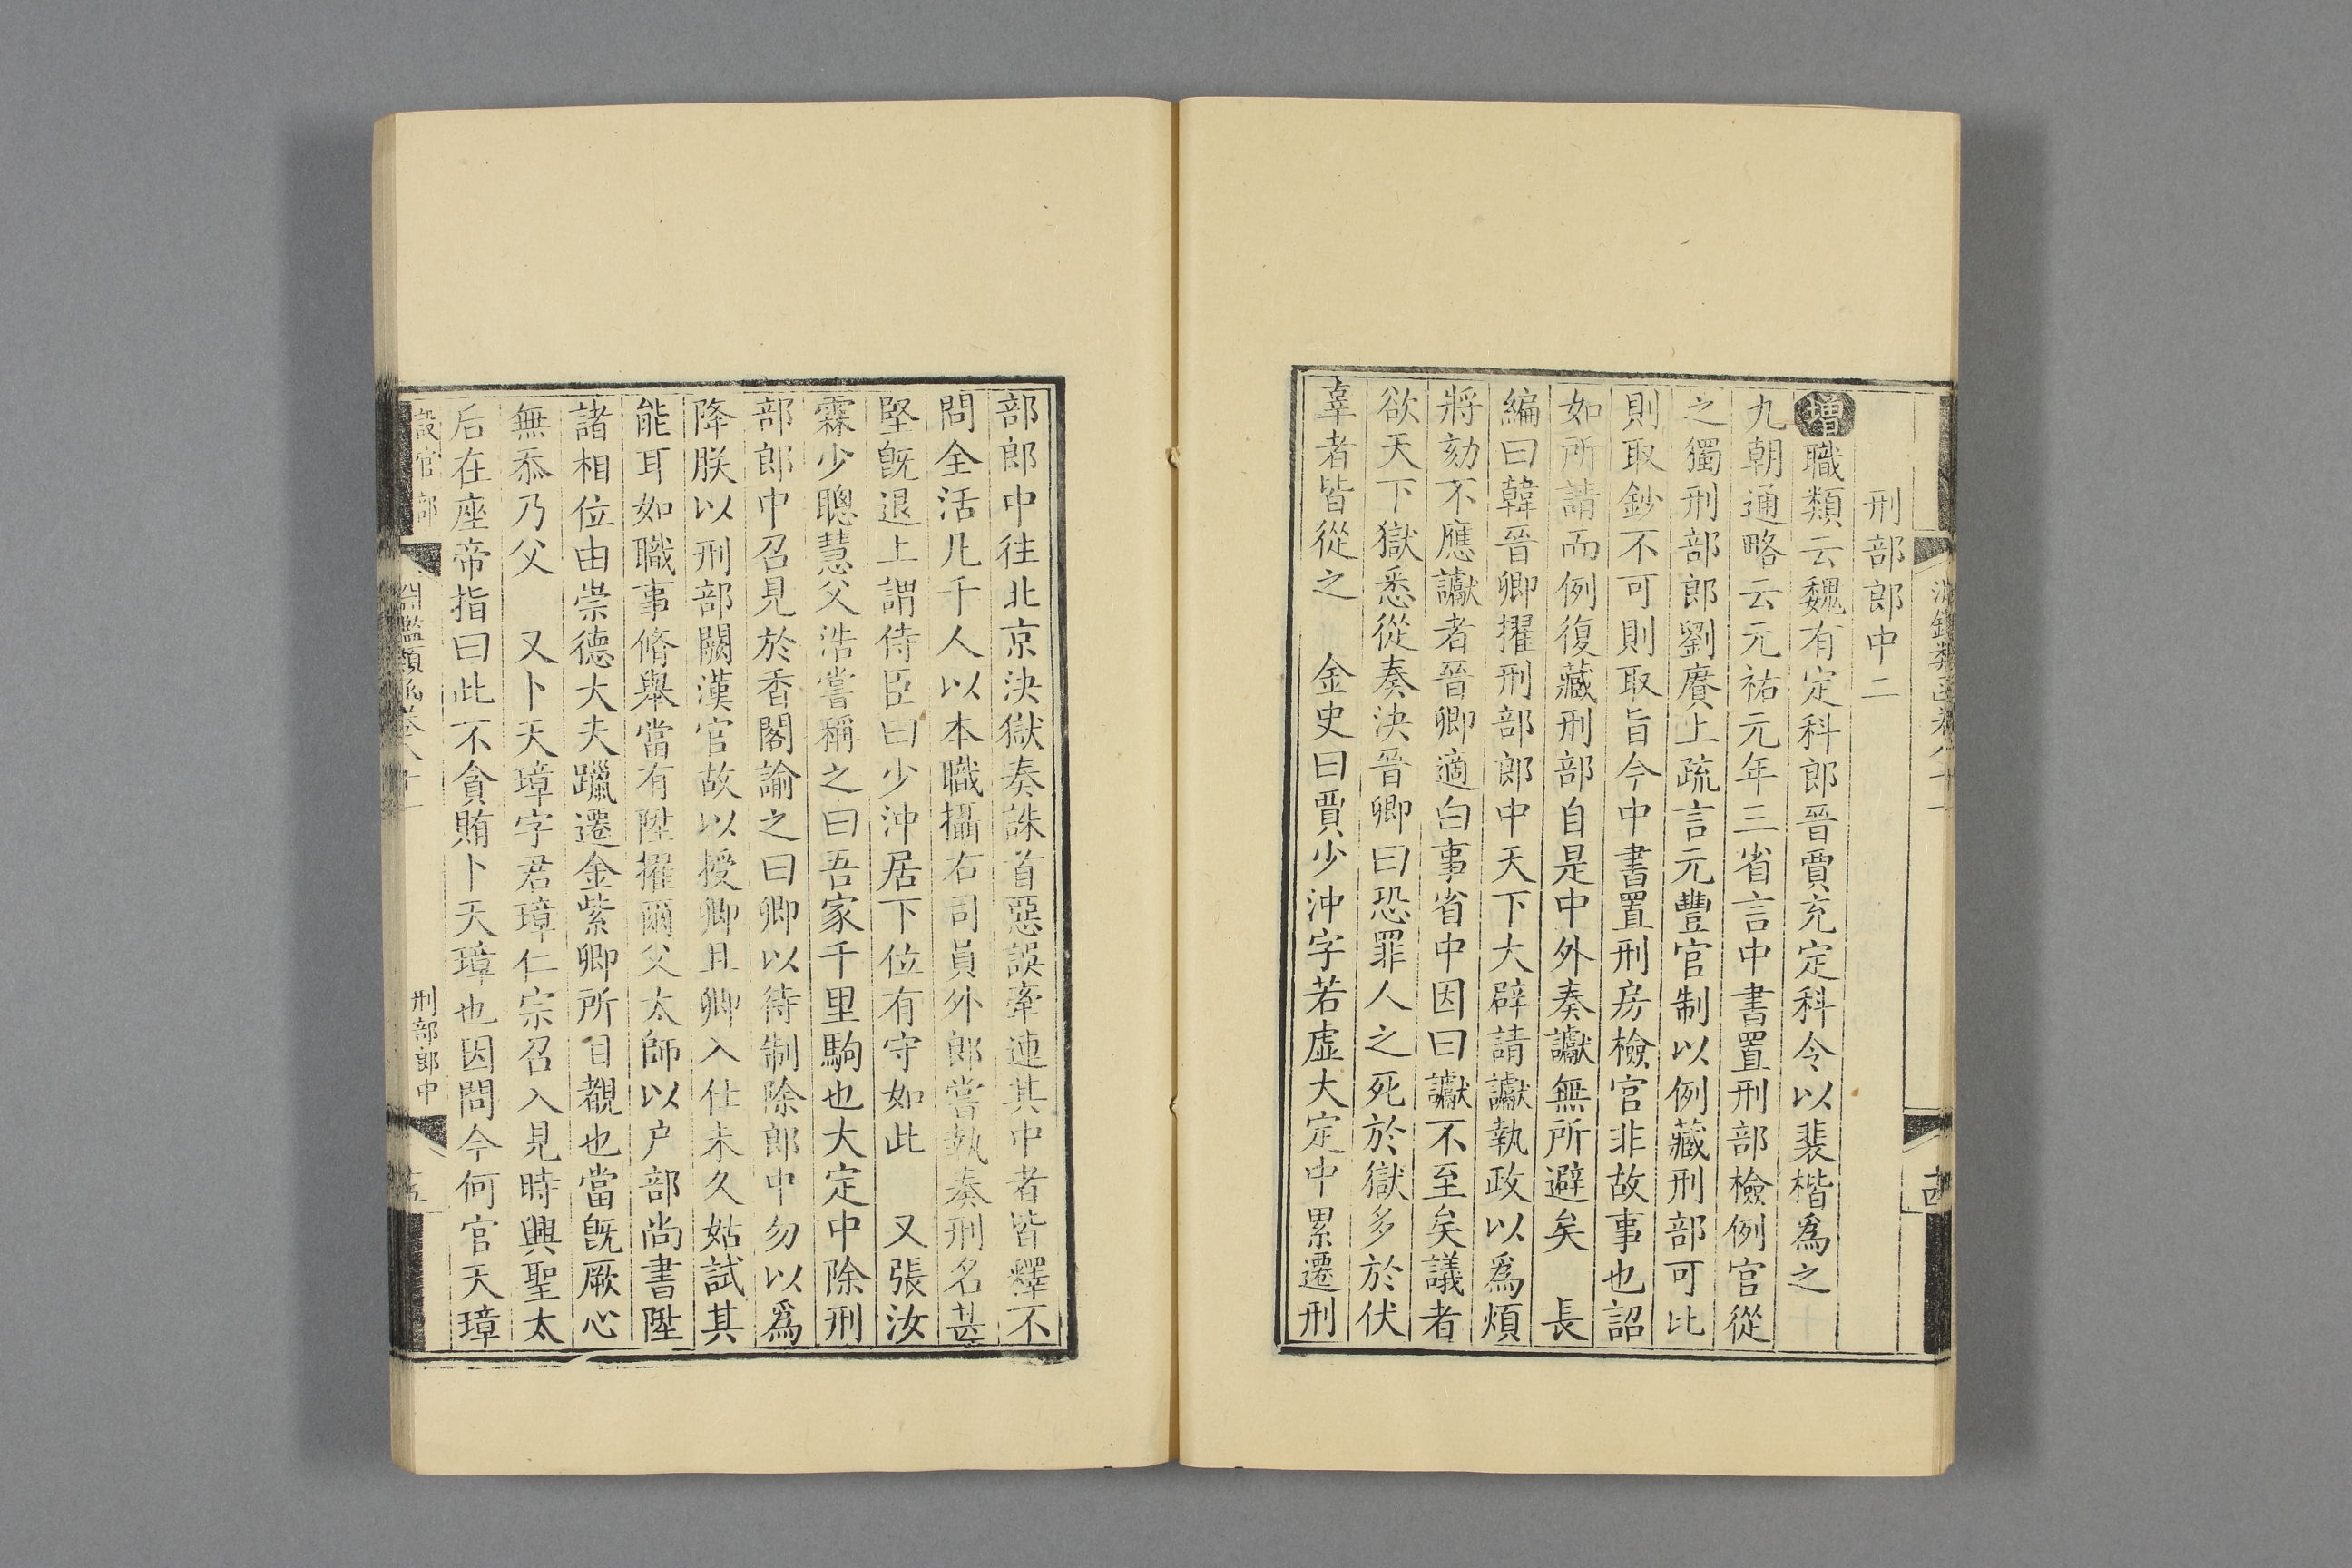 淵鑑類函卷八十一
十四
刑部郎中二
增職類云魏有定科郎晉賈充定科令以裴楷爲之
九朝通略云元祐元年三省言中書置刑部檢例官從
之獨刑部郎劉賡上疏言元豐官制以例藏刑部可比
則取鈔不可則取旨今中書置刑房檢官非故事也詔
如所請而例復藏刑部自是中外奏讞無所避矣　長
編曰韓晉卿擢刑部郎中天下大辟請讞執政以爲煩
將劾不應讞者晉卿適白事省中因曰讞不至矣議者
欲天下獄悉從奏決晉卿曰恐罪人之死於獄多於伏
辜者皆從之　金史曰賈少沖字若虛大定中累遷刑
部郎中往北京決獄奏誅首惡誤牽連其中者皆釋不
問全活凡千人以本職攝右司員外郎嘗執奏刑名甚
堅旣退上謂侍臣曰少沖居下位有守如此　又張汝
霖少聰慧父浩嘗稱之曰吾家千里駒也大定中除刑
部郎中召見於香閣諭之曰卿以待制除郎中勿以爲
降朕以刑部闕漢官故以授卿且卿入仕未久姑試其
能耳如職事脩舉當有陞擢爾父太師以户部尚書陞
諸相位由崇德大夫躐遷金紫卿所自覩也當旣厥心
無忝乃父　又卜天璋字君璋仁宗召入見時興聖太
后在座帝指曰此不貪賄卜天璋也因問今何官天璋
設官部
淵鑑類函卷八十一
刑部郎中
十五